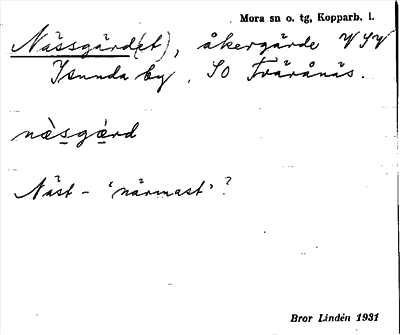 Mora sn o. tg, Kopparb. l.
Nässgärd(et), åkergärde V SV
Isunda by. SO Tväränäs.
næ̀sgæ̀rd
Näst - 'närmast'?
Bror Lindén 1931